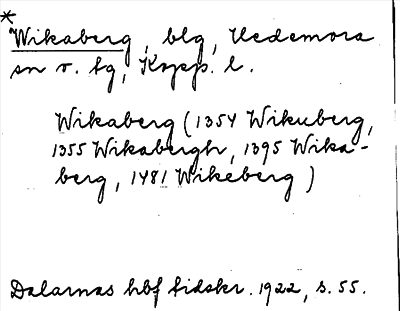 *
Wikaberg, blg, Hedemora
sn o. hg, Kopp. l.
Wikaberg (1354 Wikuberg,
1355 Wikabergh, 1395 Wika-
berg, 1481 Wikeberg)
Dalarnas hbf tidskr. 1922, s. 55.